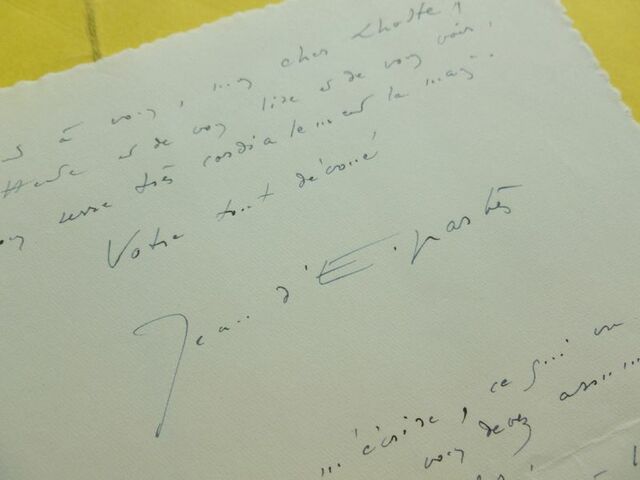 à vous, mon cher Lhoste,
Hâte de vous lire et de vous voir,
vous serre très cordialement la main.
Votre tout dévoué
Jean d'Esparbès
m'écrire, ce qui
vous devez